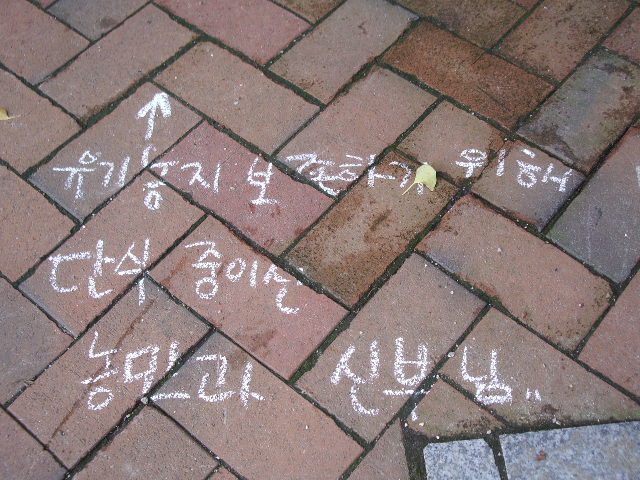 유기농지 보존하기 위해
단식 중이신
농민과 신부님..